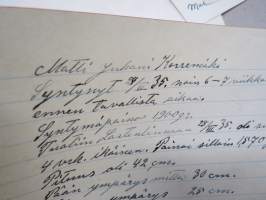 Matti Juhani Korremäki
Syntynyt 29/VII 35, noin 6-7 viikkoa
ennen tavallista aikaa.
Syntymäpaino 1900 gr.
Tuotiin Lastenlinnaan /VIII 35, oli
4 vrk. ikäisenä. Painoi silloin 1570
Pituus oli 42 cm.
Pään ympärys mitta 30 cm.
ympärys 25 cm.